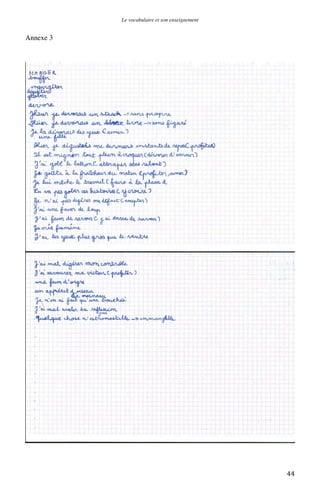 Le vocabulaire et son enseignement
Annexe 3
MANGER
bouffer
ingurgiter
dévorer
Hier je dévorais un steack → sens propre
Hier je dévorais un livre → sens figuré
Je la dévorais des yeux (aimer)
une fille
Hier, je me dernière instants de repos (profiter)
Il est mignon tout plein à croquer (dévorer d'amour)
J'ai goûté le ballon (
Je goûte à la fraîcheur du matin (profiter, aimer)
Je lui mâche le travail (faire à la place de
Tu vas pas gober ces histoires (y croire)
Je n'ai pas digérer ma défaite (accepter)
J'ai une faim de loup
J'ai faim de savoir (j'ai envie de savoir)
Je crie famine
J'ai les yeux plus gros que le ventre
J'ai mal digérer mon contrôle
J'ai savourer ma victoire (profiter)
une faim d'ogre
un appétit d'oiseau
de moineau
Je n'en ai fait qu'une bouchée
J'ai mal avalé ta réflexion
Quelque chose n'est → immangeable
44